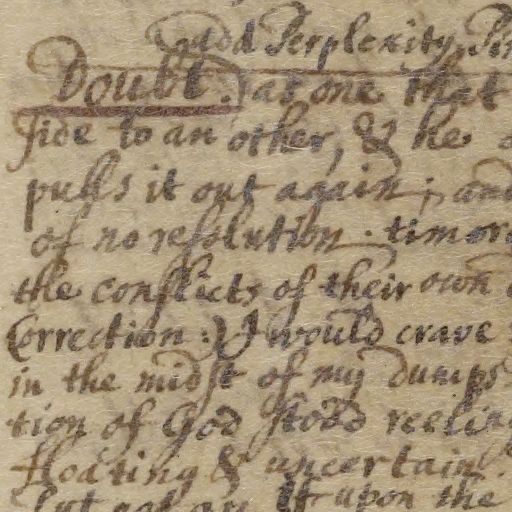 add Perplexity,
Doubt. as one that
side to an other, & he
pulls it out again; and
of no resolution. timor
the conflicts of their own
Correction:) I would crave
in the midst of my dumps
tion of God stood reelin
floating & uncertain.
upon the